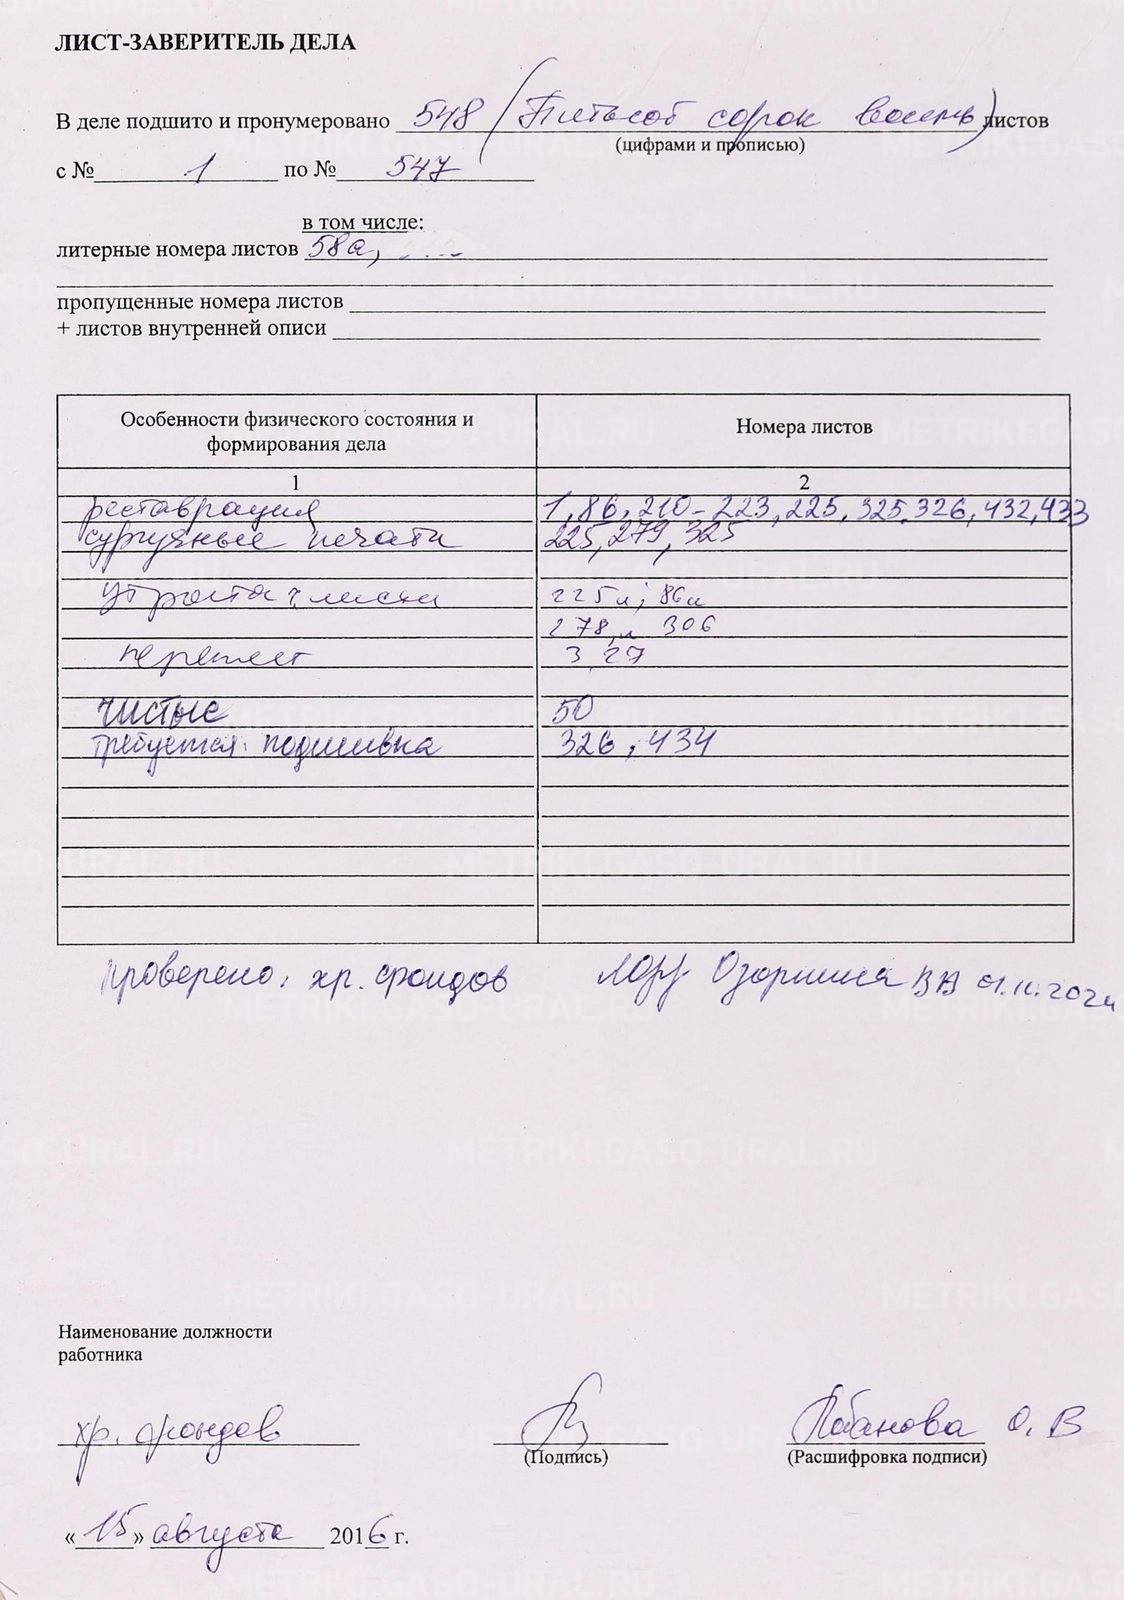 ЛИСТ-ЗАВЕРИТЕЛЬ ДЕЛА
В деле подшито и пронумеровано 548 (Пятьсот сорок восемь) листов
(цифрами и прописью)
с № 1 по № 547
в том числе:
литерные номера листов 58а,
пропущенные номера листов
+ листов внутренней описи
Особенности физического состояния и формирования дела
Номера листов
1
2
реставрация 1, 86, 210-223, 225, 325, 326, 432, 433
сургучные печати 225, 279, 325
утрата ч. листа 225л; 86л
278, л 306
переплет 3 27
чистые 50
требуется: подшивка 326, 434
проверено: хр. фондов Озорнина ВВ 01.11.2024
Наименование должности
работника
хр. фондов Лобанова О. В
(Подпись) (Расшифровка подписи)
«15» августа 2016 г.
METRIKI.GASO-URAL.RU